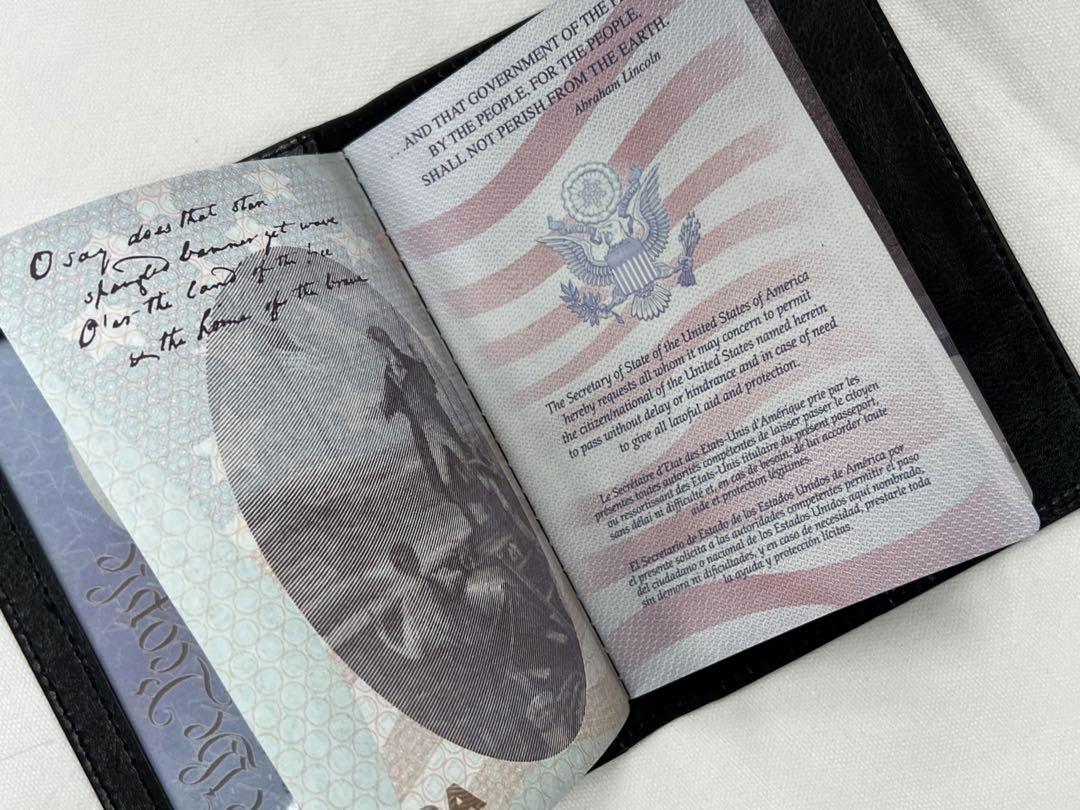 O say does that star
spangled banner yet wave
O'er the land of the free
& the home of the brave
We the People
. . AND THAT GOVERNMENT OF THE
BY THE PEOPLE, FOR THE PEOPLE,
SHALL NOT PERISH FROM THE EARTH.
Abraham Lincoln
The Secretary of State of the United States of America
hereby requests all whom it may concern to permit
the citizen/national of the United States named herein
to pass without delay or hindrance and in case of need
to give all lawful aid and protection.
Le Secrétaire d'Etat des Etats-Unis d'Amérique prie par les
présentes toutes autorités compétentes de laisser passer le citoyen
ou ressortissant des Etats-Unis titulaire du présent passeport,
sans délai ni difficulté et, en cas de besoin, de lui accorder toute
aide et protection légitimes.
El Secretario de Estado de los Estados Unidos de América por
el presente solicita a las autoridades competentes permitir el paso
del ciudadano o nacional de los Estados Unidos aquí nombrado,
sin demora ni dificultades, y en caso de necesidad, prestarle toda
la ayuda y protección lícitas.